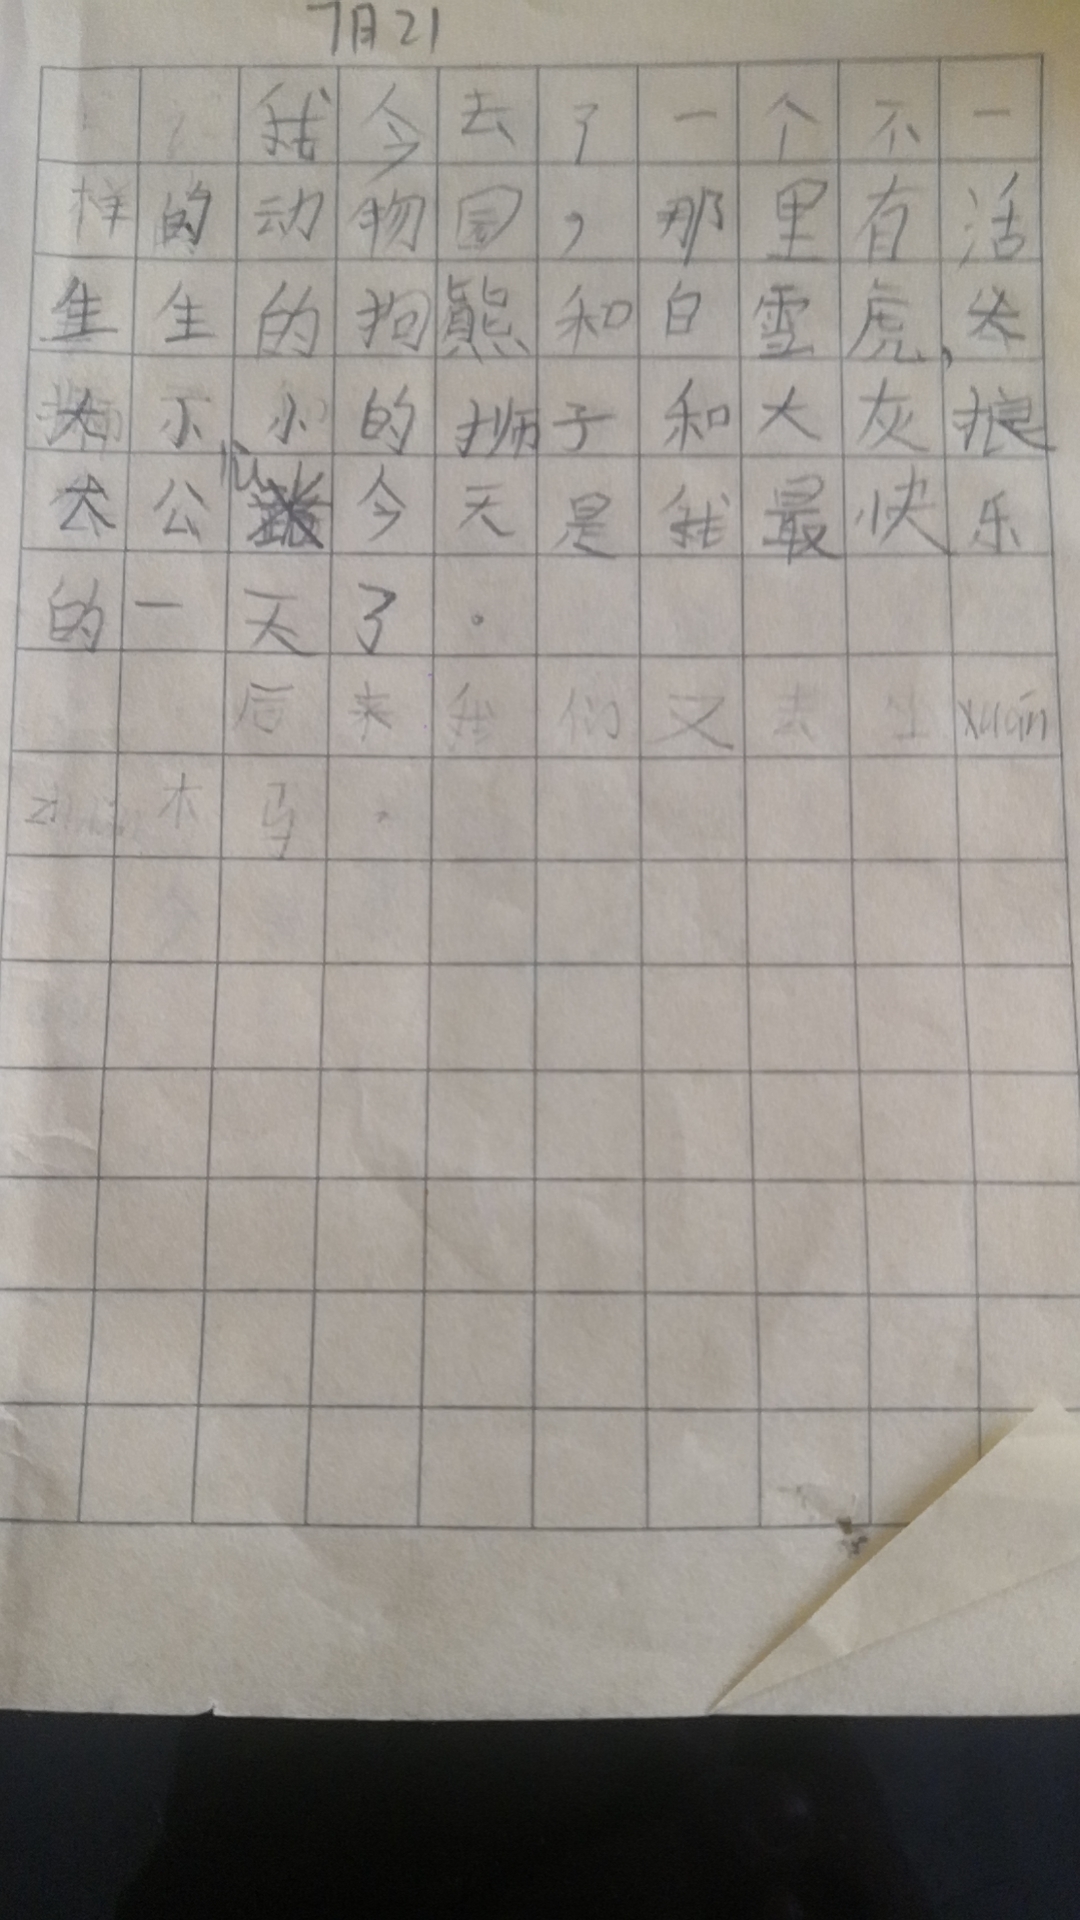 7月21
我今去了一个不一
样的动物园，那里有活
生生的狗熊和白雪虎，大
大不小的狮子和大灰狼
太公
今天是我最快乐
的一天了。
后来我们又去坐xuán
木马。